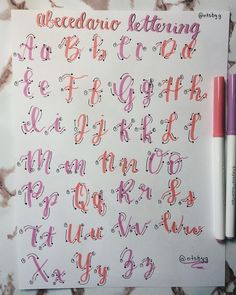 @ntsbyg
abecedario lettering
Aa Bb Cc Dd
Ee Ff Gg Hh
Ii Jj Kk Ll
Mm Nn Oo
Pp Qq Rr Ss
Tt Uu Vv Ww
@ntsbyg
Xx Yy Zz